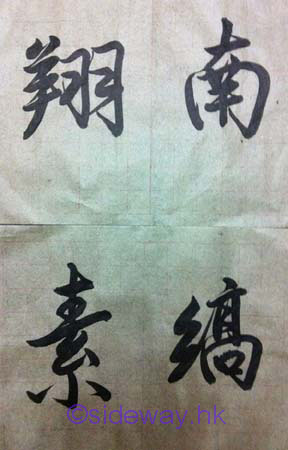 南翔
縞素
©sideway.hk